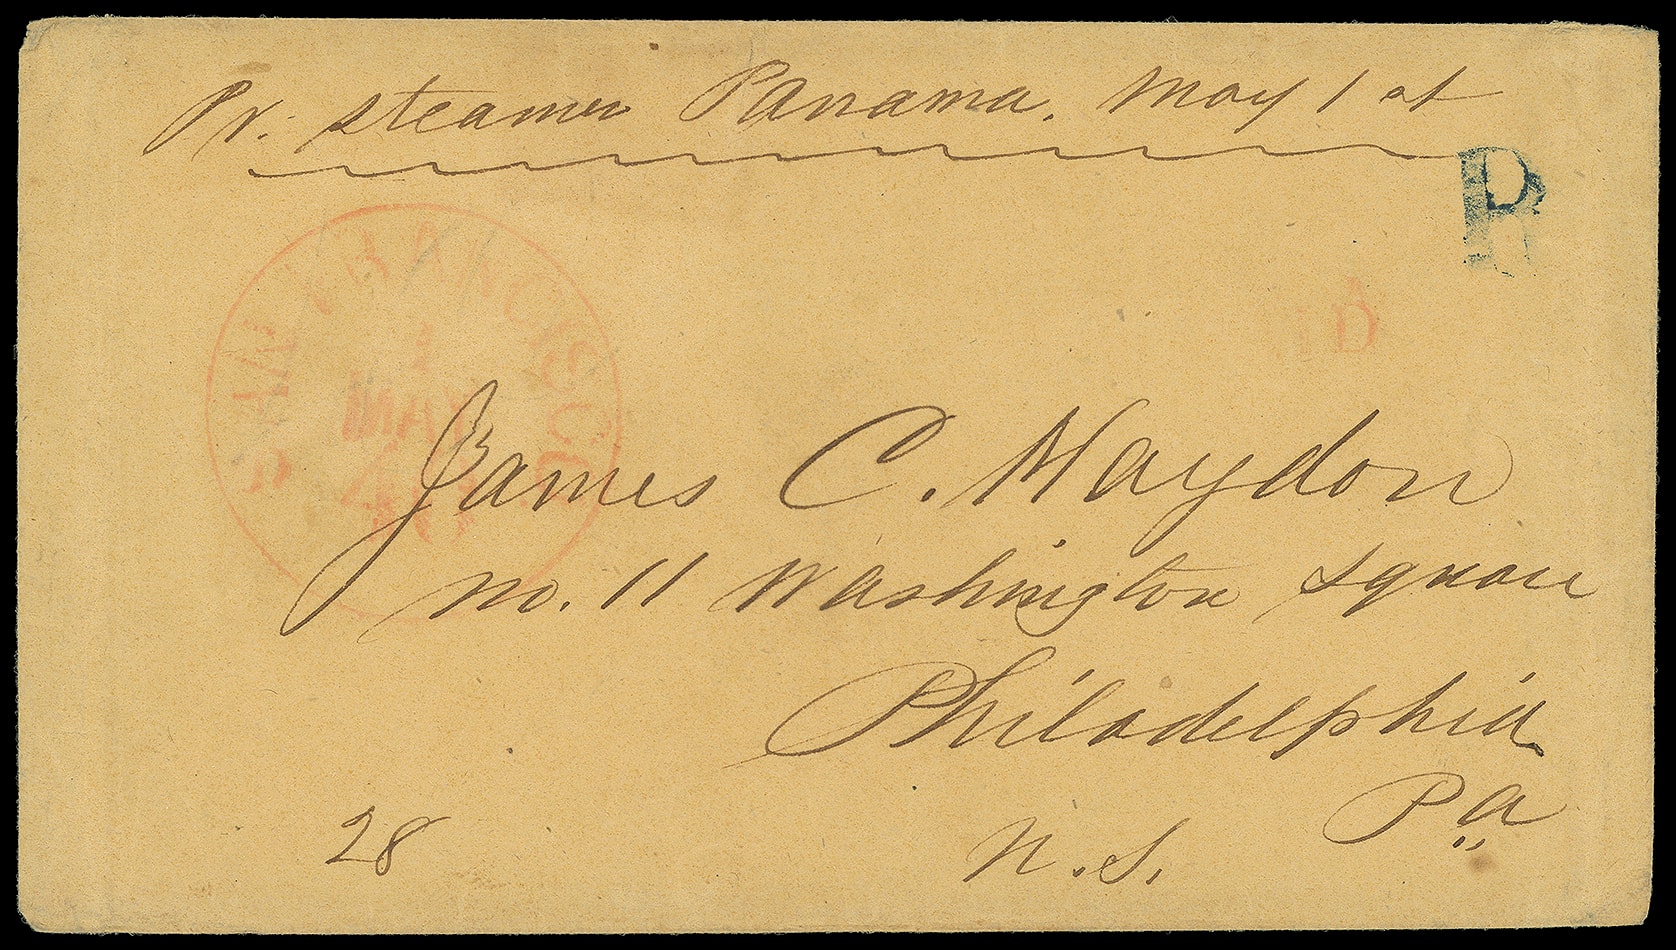 Pr. steamer Panama. May 1st
R
SAN FRANCISCO
1
MAY
40
D
James C. Haydon
No. 11 Washington square
Philadelphia
Pa
28
N.S.